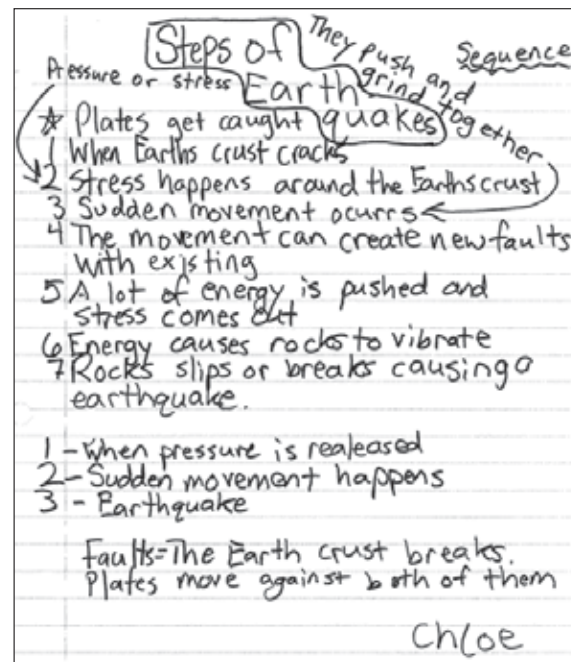 Steps of
Earth
quakes
They push and
grind together
Sequence
Pressure or stress
☆ Plates get caught
1 When Earths crust cracks
2 Stress happens around the Earths crust
3 Sudden movement ocurrs
4 The movement can create new faults
with existing
5 A lot of energy is pushed and
stress comes out
6 Energy causes rocks to vibrate
7 Rocks slips or breaks causing a
earthquake.
1 - When pressure is realeased
2 - Sudden movement happens
3 - Earthquake
Faults = The Earth crust breaks.
Plates move against both of them
Chloe